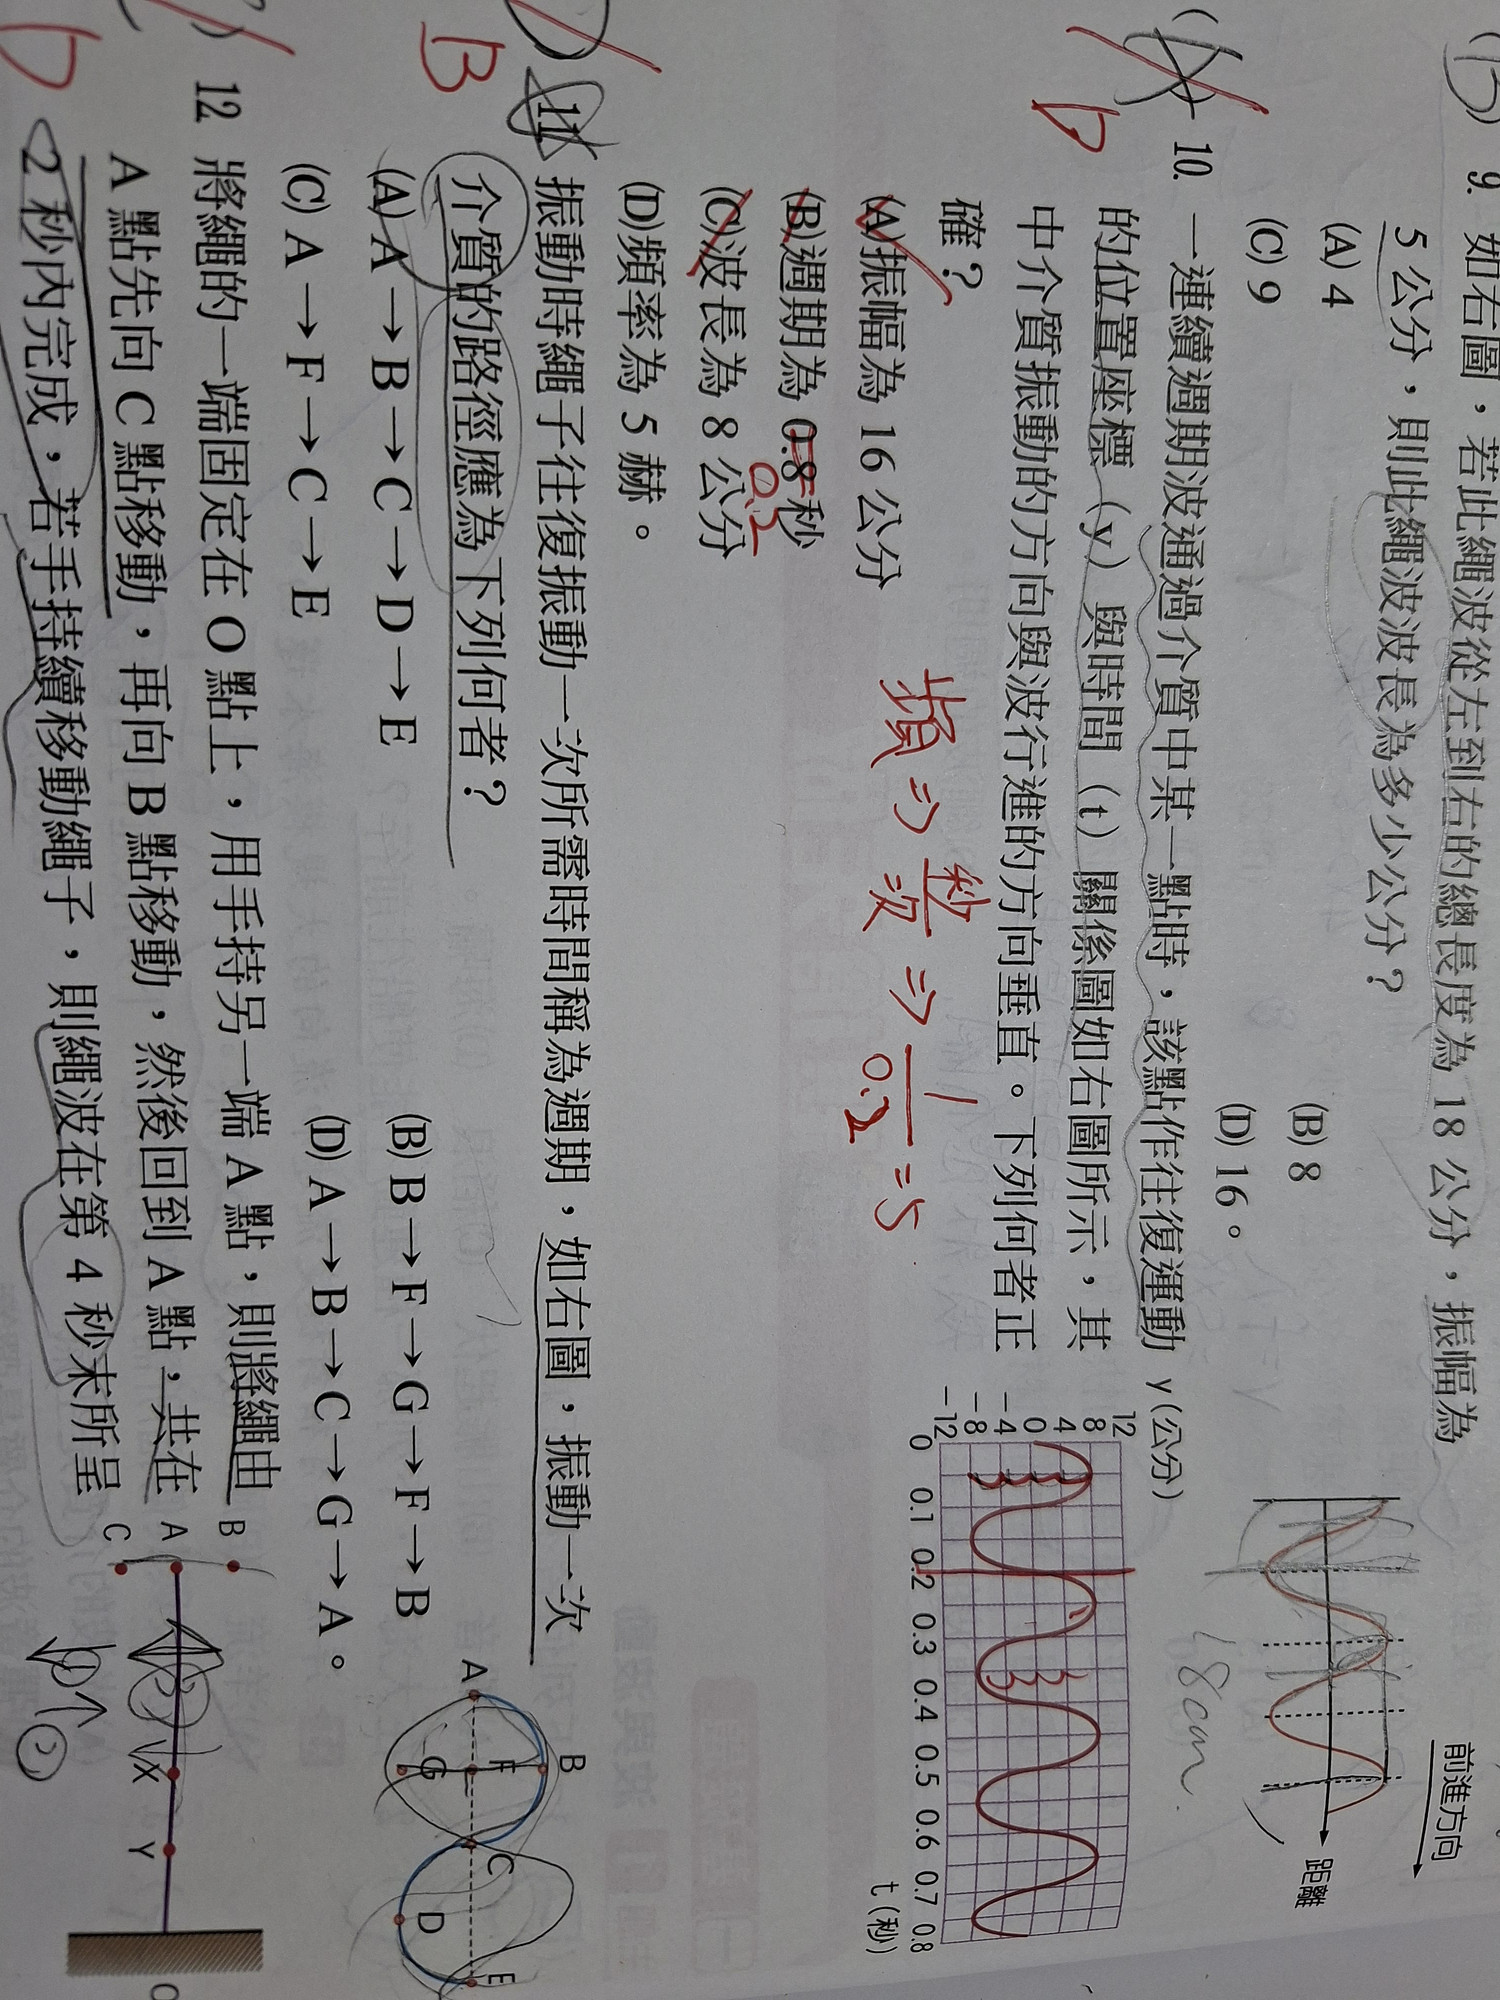 (B) 9. 如右圖，若此繩波從左到右的總長度為 18 公分，振幅為
5 公分，則此繩波波長為多少公分？
(A) 4 (B) 8
(C) 9 (D) 16。
前進方向
距離
18cm
10. 一連續週期波通過介質中某一點時，該點作往復運動
的位置座標（y）與時間（t）關係圖如右圖所示，其
中介質振動的方向與波行進的方向垂直。下列何者正
確？
(A)振幅為 16 公分
(B)週期為 0.8 秒
0.2
(C)波長為 8 公分
(D)頻率為 5 赫。
D
頻⇒秒/次⇒1/0.2=5
y (公分)
12
8
4
0
－4
－8
－12
0 0.1 0.2 0.3 0.4 0.5 0.6 0.7 0.8
t (秒)
11. 振動時繩子往復振動一次所需時間稱為週期，如右圖，振動一次
介質的路徑應為下列何者？
(A) A→B→C→D→E (B) B→F→G→F→B
(C) A→F→C→E (D) A→B→C→G→A。
B
A B F G C D E
12 將繩的一端固定在 O 點上，用手持另一端 A 點，則將繩由
A 點先向 C 點移動，再向 B 點移動，然後回到 A 點，共在
2 秒內完成，若手持續移動繩子，則繩波在第 4 秒末所呈
D
B
A
C
X Y
O
②